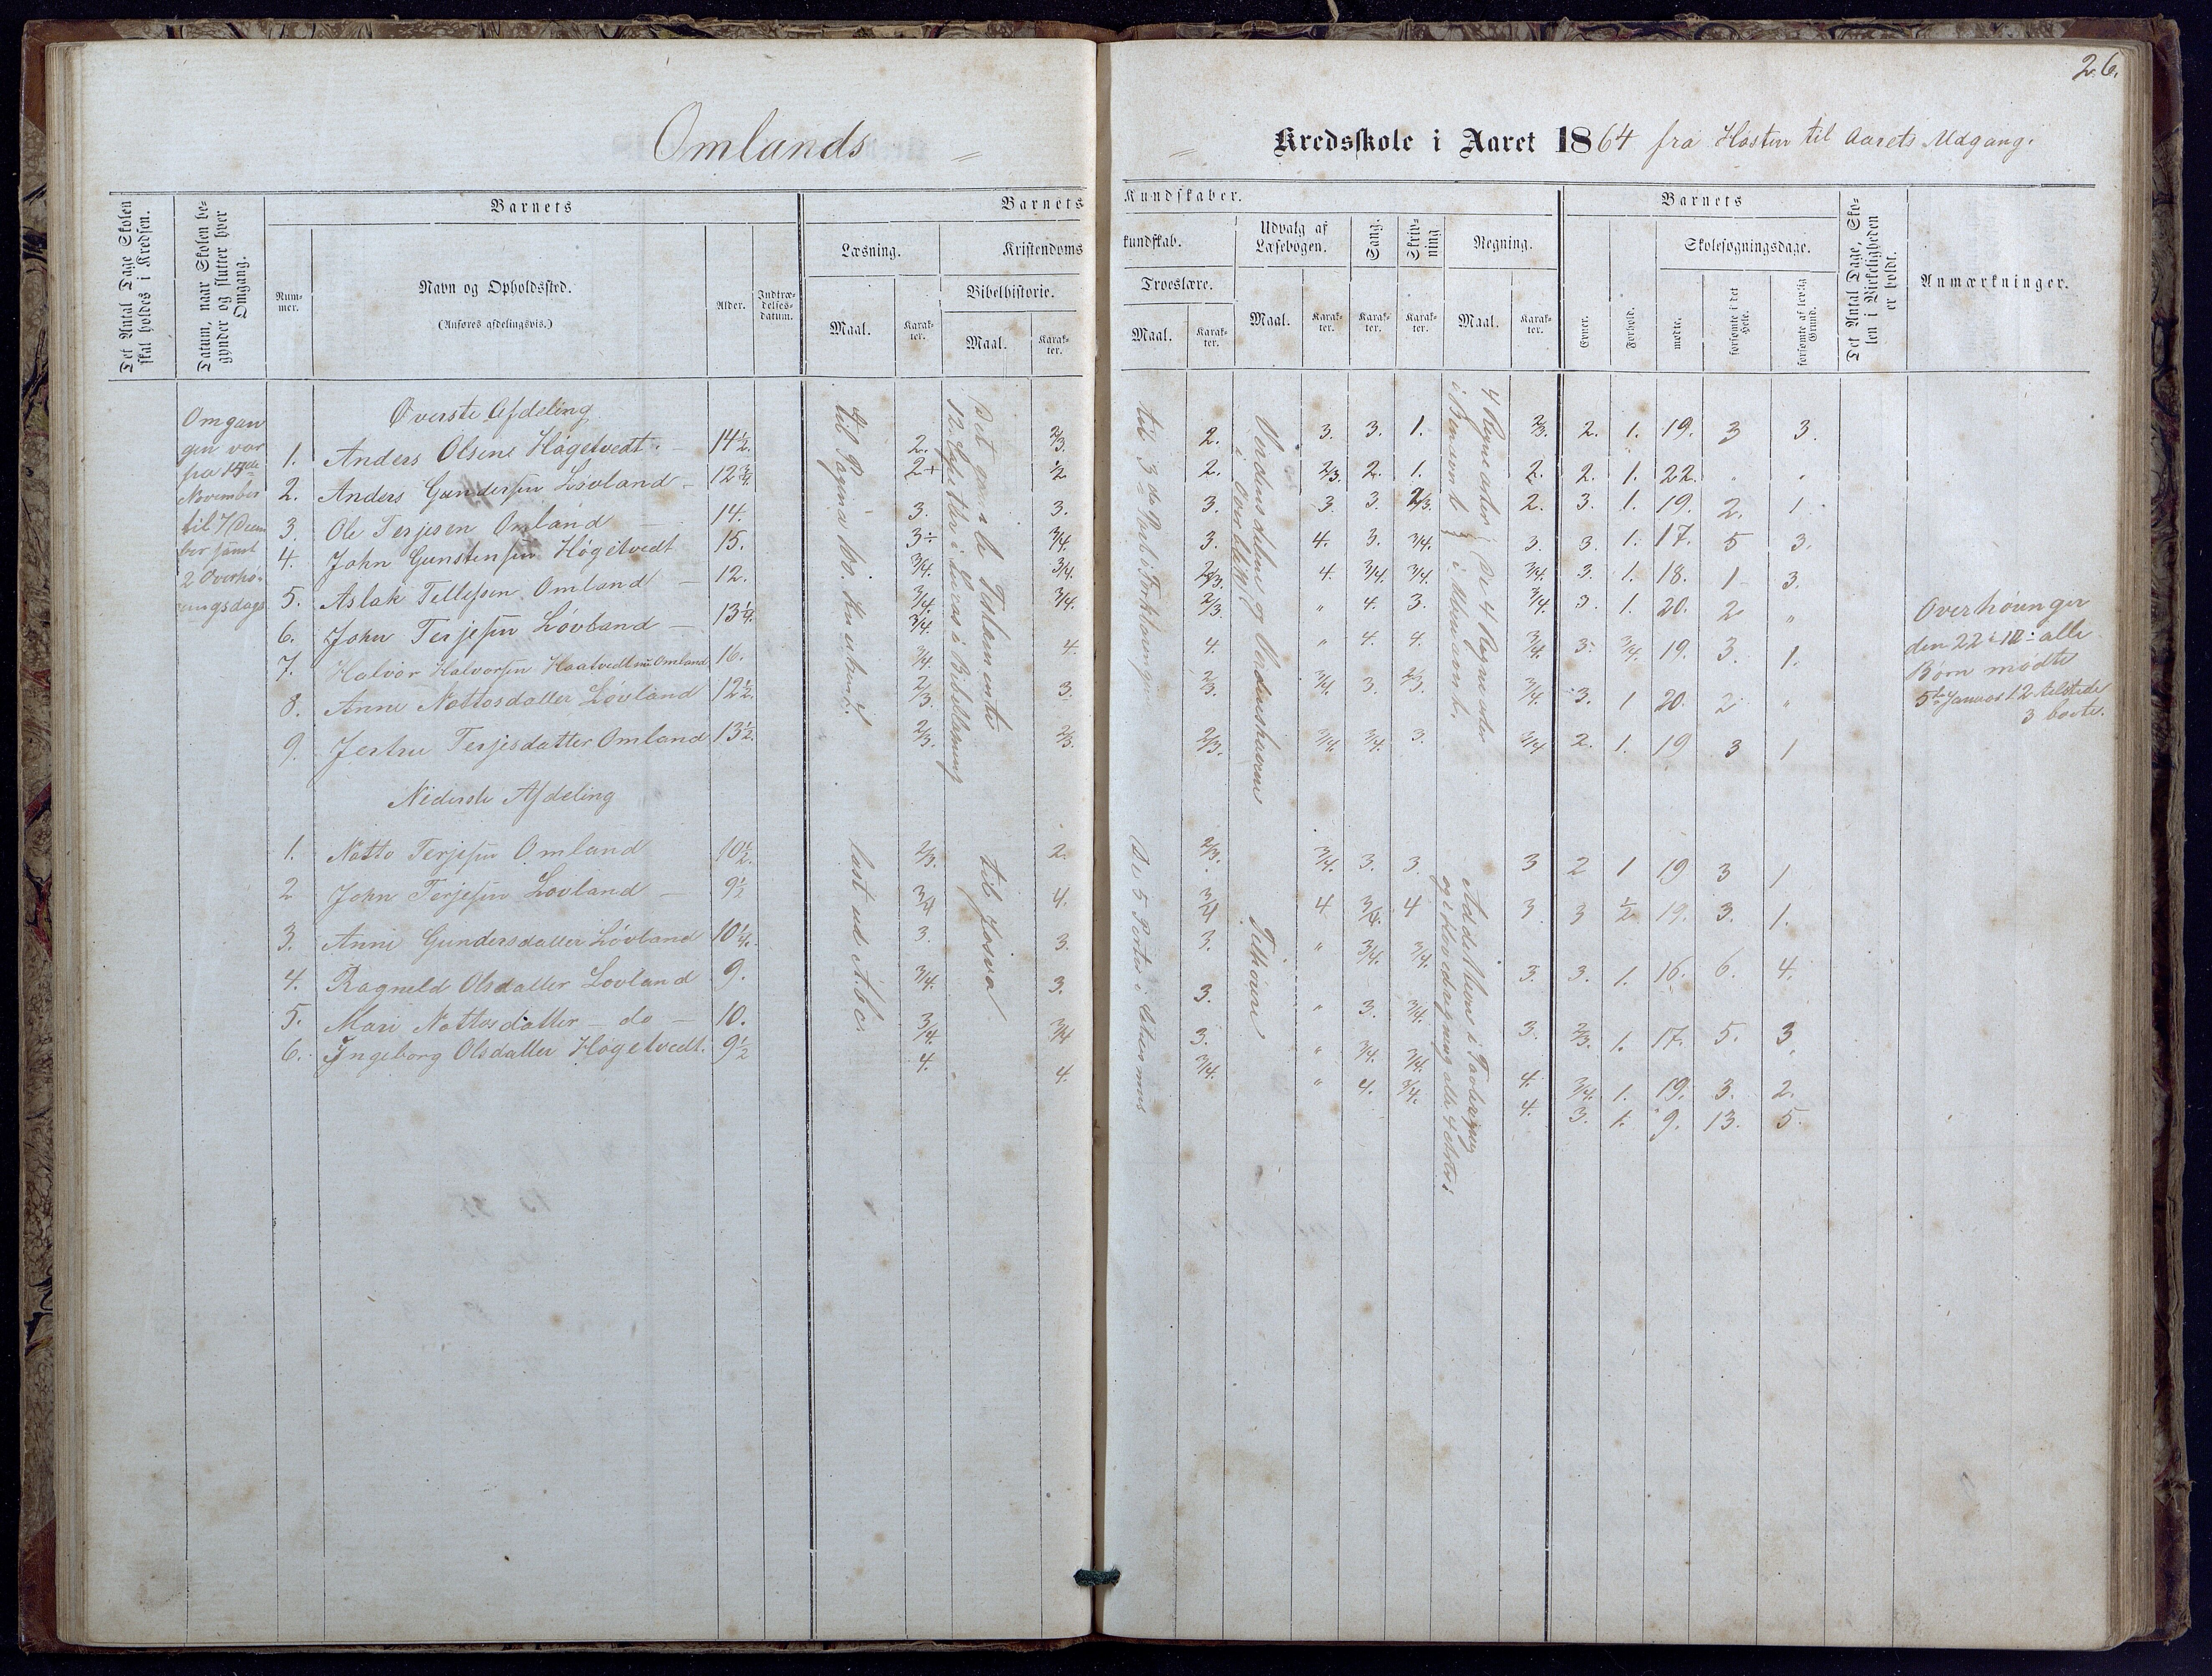 26.
Omlands = = Kredsskole i Aaret 1864 fra Høsten til Aarets Udgang.
Det Antal Dage Skolen skal holdes i Kredsen.
Datum, naar Skolen begynder og slutter hver Omgang.
Barnets
Nummer.
Navn og Opholdssted.
(Anføres afdelingsvis.)
Alder.
Indtrædelsesdatum.
Barnets Kundskaber.
Læsning.
Maal.
Karakter.
Kristendomskundskab.
Bibelhistorie.
Maal.
Karakter.
Troeslære.
Maal.
Karakter.
Udvalg af Læsebogen.
Maal.
Karakter.
Sang.
Karakter.
Skrivning
Karakter.
Regning.
Maal.
Karakter.
Barnets
Evner.
Forhold.
Skolesøgningsdage.
mødte.
forsømte i det Hele.
forsømte af lovlig Grund.
Det Antal Dage, Skolen i Virkeligheden er holdt.
Anmærkninger.
Omgan
gen var
fra 15de
November
til 7 Decem
ber samt
2 Overhø-
ringsdage
Øverste Afdeling
1. Anders Olsens Høgetvedt. 14½. 2. 2/3. 2. 3. 3. 1. 2/3. 2. 1. 19. 3 3.
2. Anders Gundersen Løvland 12¾. 2+ ½ 2. 2/3. 2. 1. 2. 2. 1. 22. " "
3. Ole Terjesen Omland 14. 3. 3. 3. 3. 3. 2/3. 2. 3. 1. 19. 2. 1
4. John Gunstensen Høgetvedt 15. 3÷ 3/4. 3. 4. 3. 3/4. 3. 3. 1. 17. 5 3.
5. Aslak Tellefsen Omland 12. 3/4. 3/4. 2/3. 4. 3/4. 3/4. 3/4. 3. 1. 18. 1 3.
6. John Terjesen Løvland 13¼. 3/4. 3/4. 2/3 " 4. 3. 3/4. 3. 1. 20. 2 "
7. Halvor Halvorsen Omland 16. 3/4. 4. 4. " 4. 4. 3/4. 3. 3/4. 19. 3. 1.
8. Anne Nottosdatter Løvland 12½. 2/3. 3. 2/3. 3/4. 3. 2/3. 3/4. 3. 1 20. 2 "
9. Jertru Terjesdatter Omland 13½. 2/3. 2/3. 2/3. 3/4. 3/4. 3. 3/4 2. 1. 19 3 1
til Pagina
Det gamle Testamente
12 Lucas i Bibellæsning
til 3de Part i Forklaringen
Verdensdelene og Verdenshavene
i Overblik
4 Regnearter
i Benævnt
de 4 Regnearter
i Ubenævnt.
Overhøringer
den 22 i 12 alle
Børn mødte
5te Januar 12 tilstede
3 borte.
Nederste Afdeling
1. Notto Terjesen Omland 10½. 2/3. 2. 2/3. 3/4. 3. 3. 3 2 1 19 3 1
2 John Terjesen Løvland 9½ 3/4 4. 3/4 4 3/4. 4 3. 3 ½ 19. 3. 1.
3. Anne Gundersdatter Løvland 10¼. 3. 3. 3. " 3/4. 3/4. 3. 3. 1. 16. 6. 4.
4. Ragneld Olsdatter Løvland 9. 3/4. 3. 3. " 3. 3/4. 3. 2/3. 1. 17. 5. 3
5. Mari Nottosdatter do 10. 3/4. 3/4 3. " 3/4. 3/4. 4. 3/4. 1. 19. 3. 2.
6. Ingeborg Olsdatter Høgetvedt. 9½ 4. 4. 3/4. " 4. 3/4. 4. 3. 1. 9. 13. 5.
læst ud A.b.c.
til Josva
De 5 Parter i
Addition i
og Hovedregning alle 4 Arter i